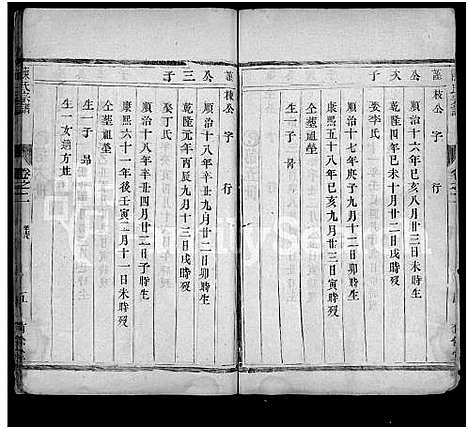 公次子
謹枝公字行
順治十六年己亥十月廿二日未時生
乾隆四年己未十一月廿二日戌時歿
娶李氏
順治十七年庚子九月廿二日卯時生
康熙五十八年己亥九月廿三日寅時歿
仝塟祖塋
生一子
公三子
謹枝公字行
順治十八年辛丑九月廿二日卯時生
乾隆元年丙辰九月十三日戌時歿
娶丁氏
順治十八年辛丑四月廿二日子時生
康熙六十一年後壬寅二月十一日未時歿
仝塟祖塋
生一子 昻
生一女適方姓
氏宗譜 卷之二 五